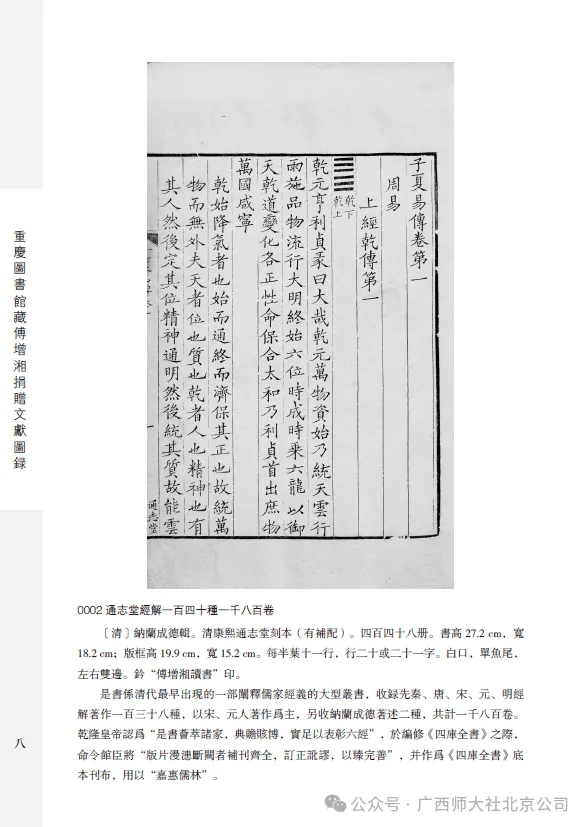 重慶圖書館藏傅增湘捐贈文獻圖録
八
子夏易傳卷第一
周易
上經乾傳第一
乾下
乾上
乾元亨利貞彖曰大哉乾元萬物資始乃統天雲行
雨施品物流行大明終始六位時成時乘六龍以御
天乾道變化各正性命保合太和乃利貞首出庶物
萬國咸寧
乾始降氣者也始而通終而濟保其正也故統萬
物而無外夫天者位也質也乾者人也精神也有
其人然後定其位精神通明然後統其質故能雲
通志堂
0002 通志堂經解一百四十種一千八百卷
［清］納蘭成德輯。清康熙通志堂刻本（有補配）。四百四十八册。書高 27.2 cm，寬
18.2 cm；版框高 19.9 cm，寬 15.2 cm。每半葉十一行，行二十或二十一字。白口，單魚尾，
左右雙邊。鈐“傅增湘讀書”印。
是書係清代最早出現的一部闡釋儒家經義的大型叢書，收録先秦、唐、宋、元、明經
解著作一百三十八種，以宋、元人著作爲主，另收納蘭成德著述二種，共計一千八百卷。
乾隆皇帝認爲“是書薈萃諸家，典贍賅博，實足以表彰六經”，於編修《四庫全書》之際，
命令館臣將“版片漫漶斷闕者補刊齊全，訂正訛謬，以臻完善”，并作爲《四庫全書》底
本刊布，用以“嘉惠儒林”。
公众号 · 广西师大社北京公司